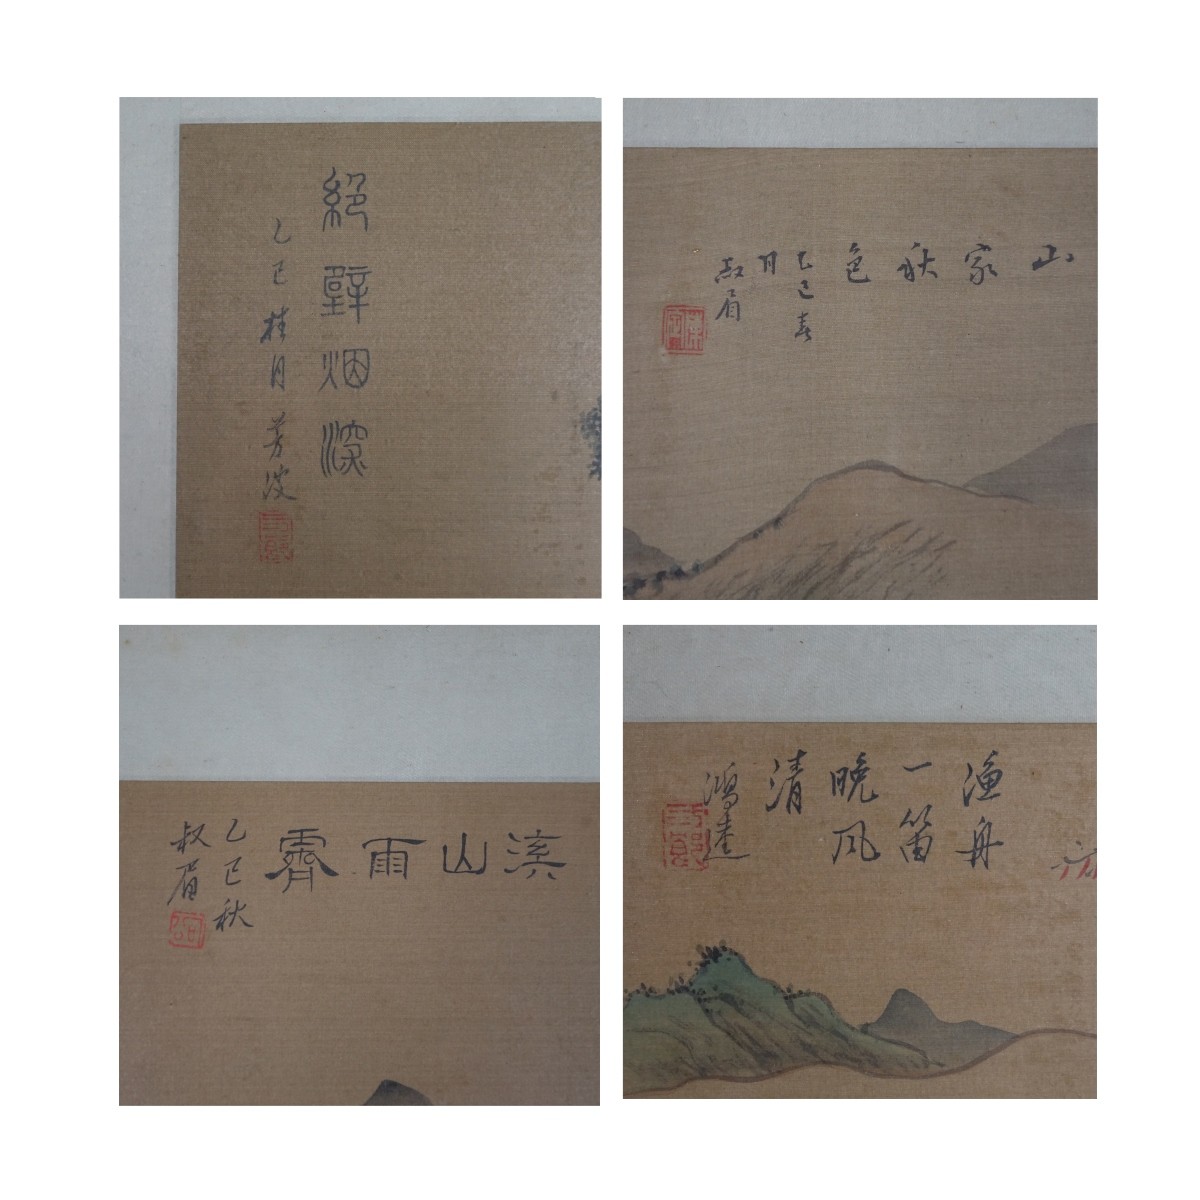 絕壁烟深
乙巳桂月芳波
山家秋色
乙巳春
月
叔眉
溪山雨霽
乙巳秋
叔眉
漁舟
一笛
晚風
清
鴻逵